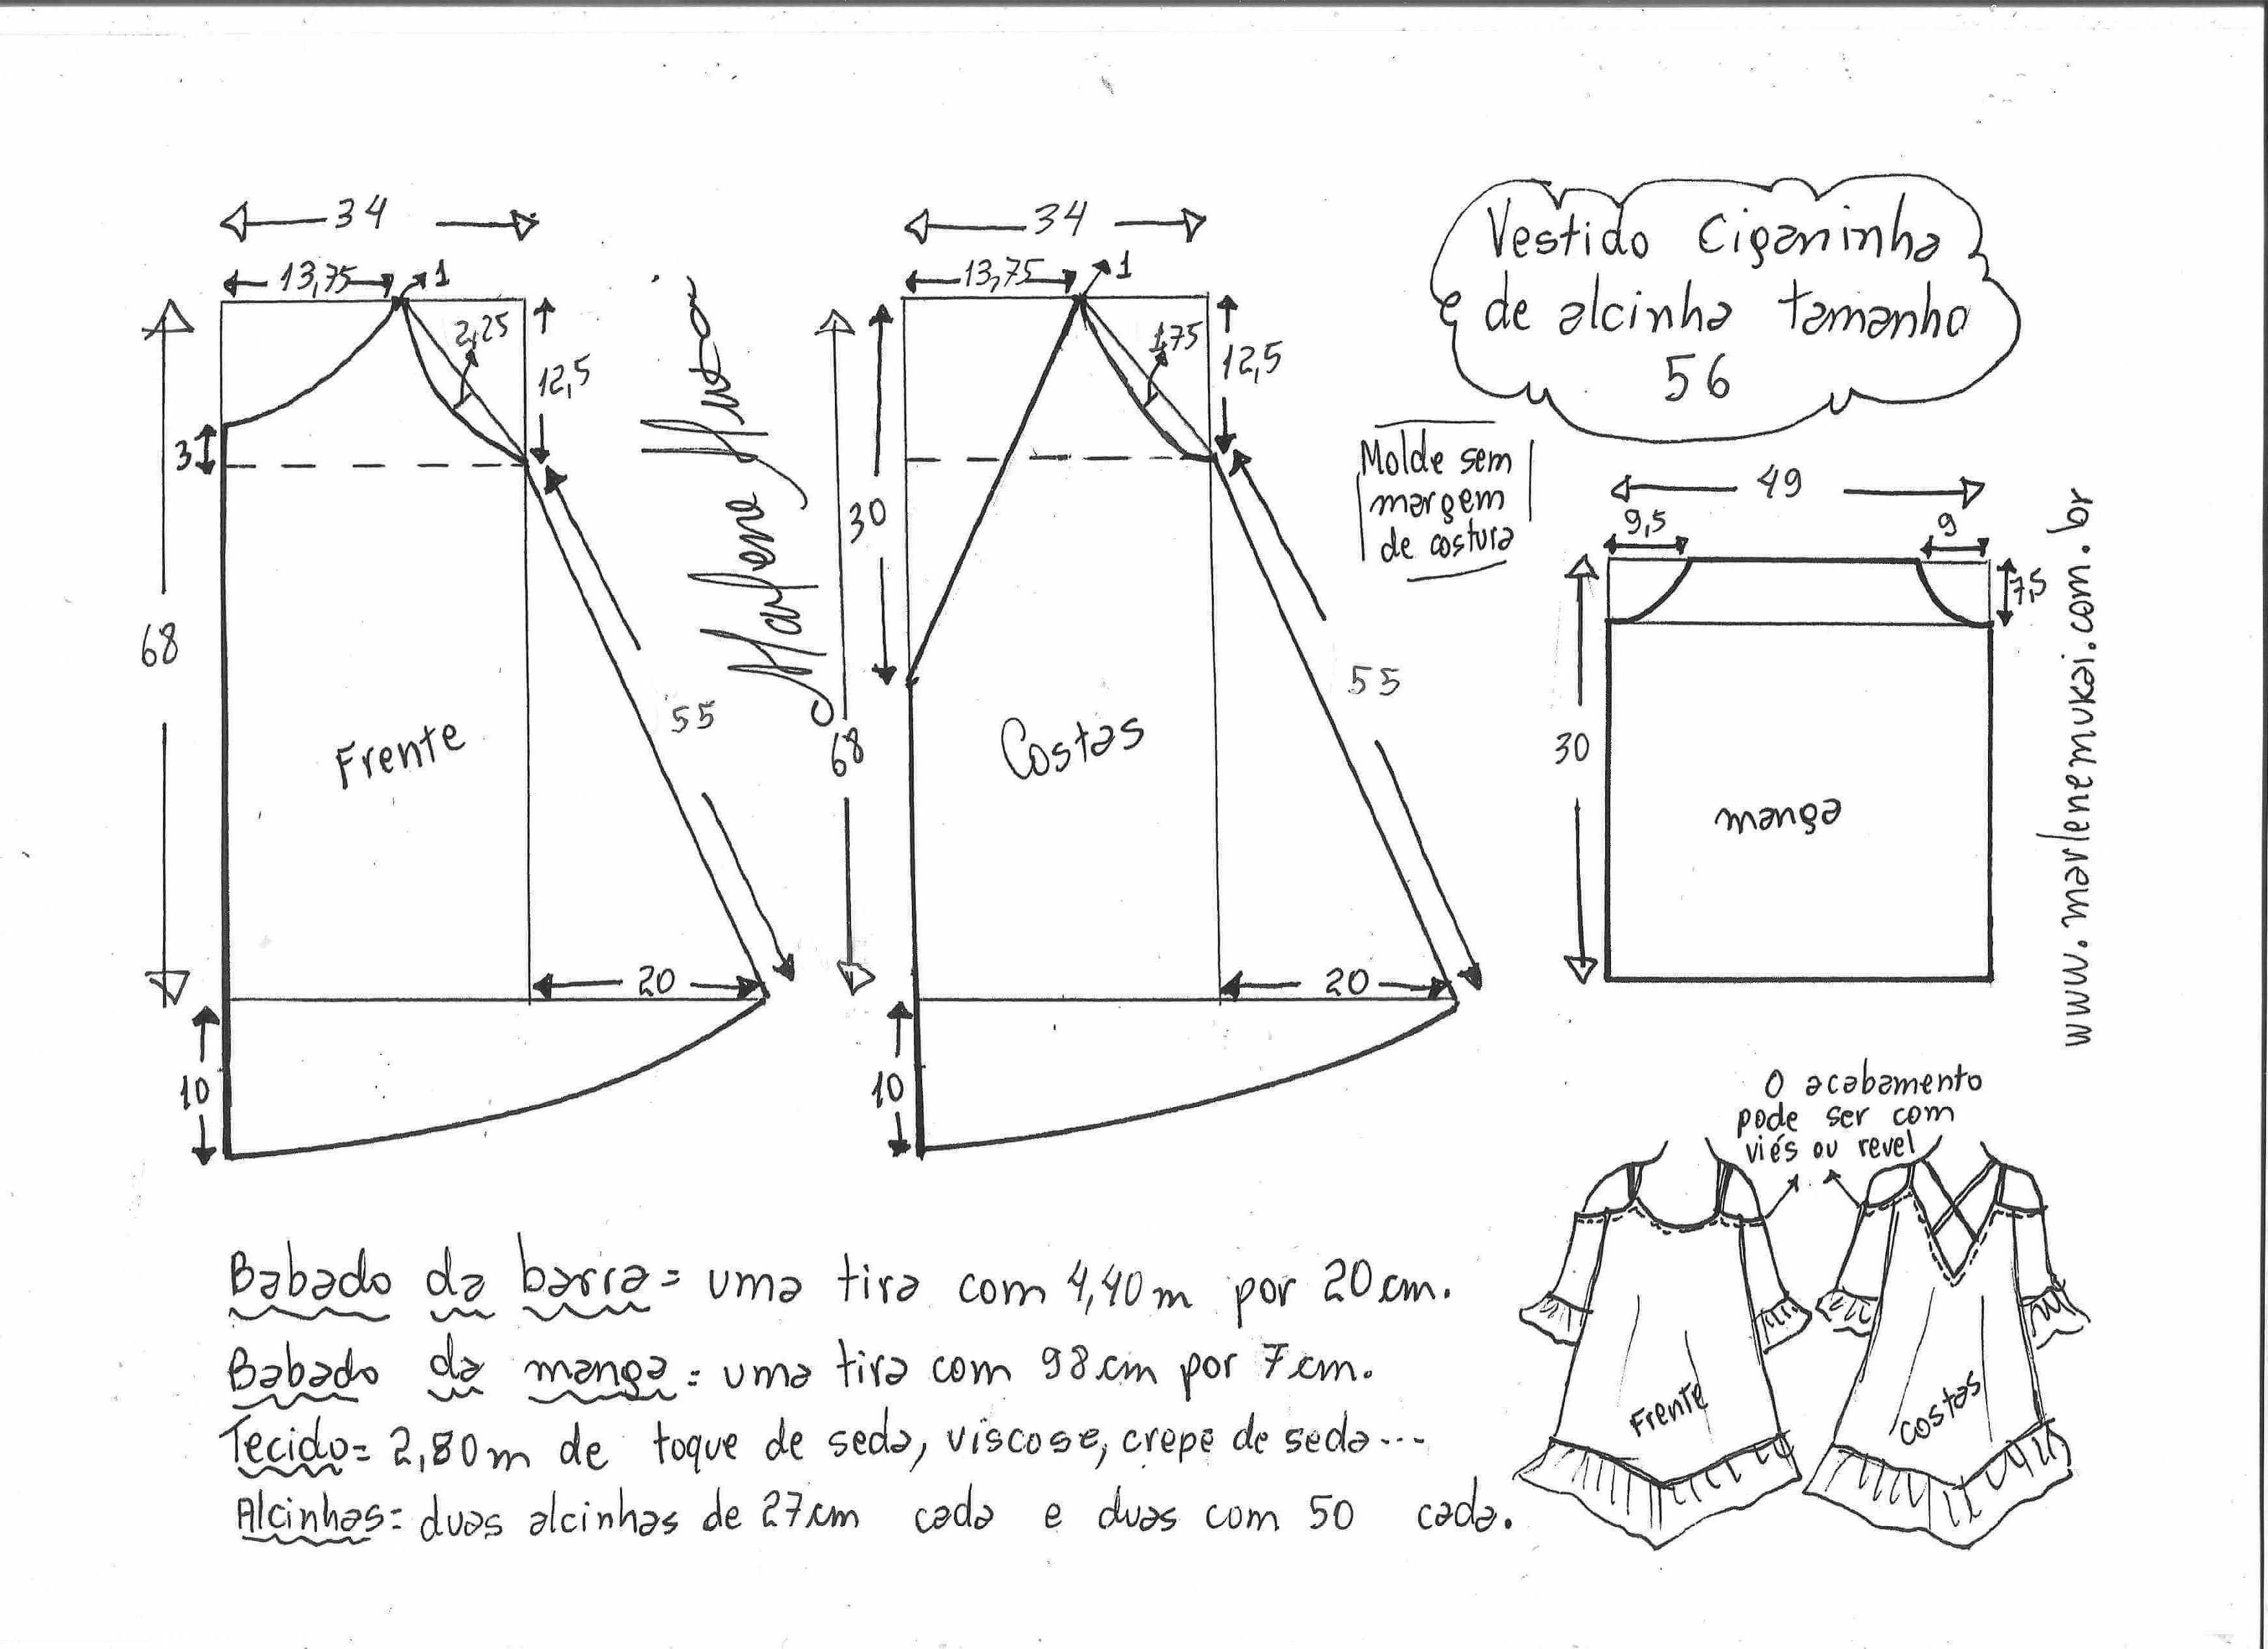 Vestido Ciganinha
e de alcinha tamanho
56
34
13,75
1
2,25
12,5
3
68
55
Frente
20
10
Marlene Mukai
34
13,75
1
1,75
12,5
30
68
55
Costas
20
10
Molde sem
margem
de costura
49
9,5
9
7,5
30
manga
www.marlenemukai.com.br
O acabamento
pode ser com
viés ou revel
Frente
Costas
Babado da barra = uma tira com 4,40m por 20cm.
Babado da manga = uma tira com 98cm por 7cm.
Tecido = 2,80m de toque de seda, viscose, crepe de seda...
Alcinhas = duas alcinhas de 27cm cada e duas com 50 cada.